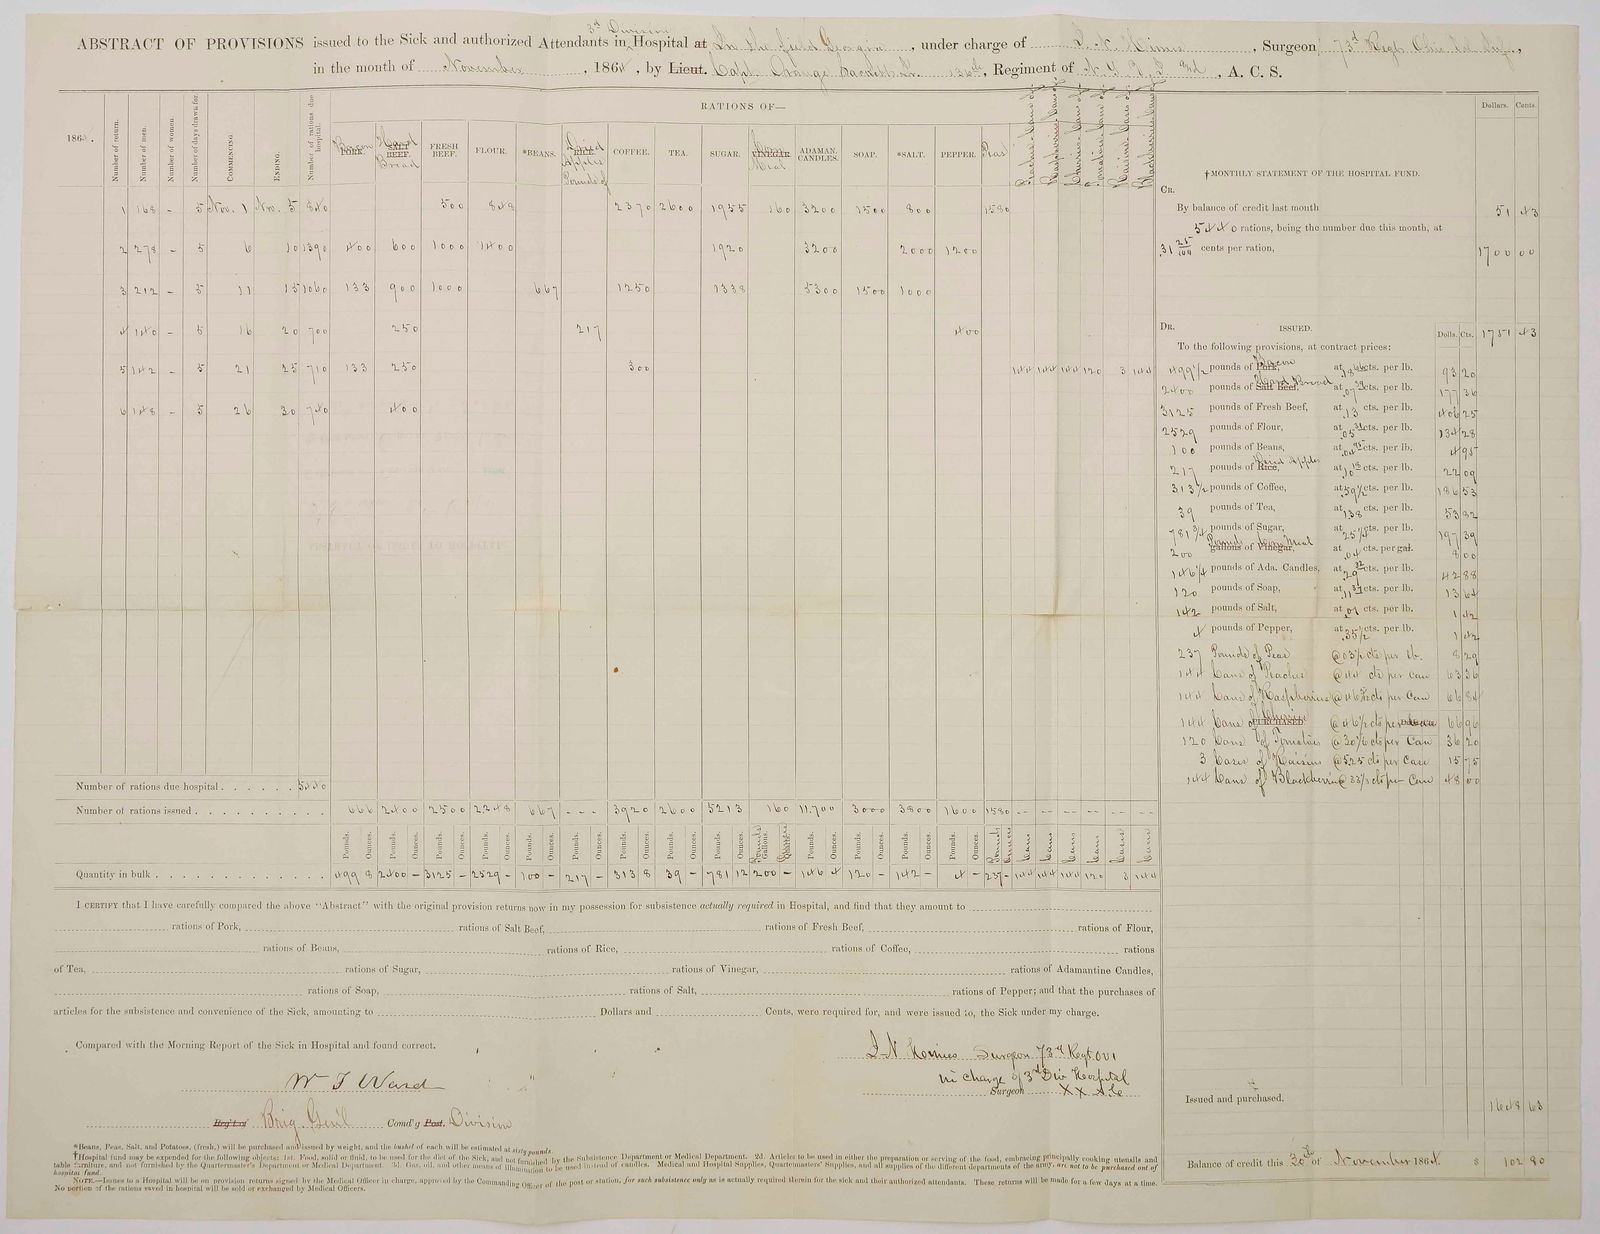 3d Division
ABSTRACT OF PROVISIONS issued to the Sick and authorized Attendants in Hospital at In the field Georgia, under charge of I. N. Himes, Surgeon 73d Regt Ohio Vol Inf.,
in the month of November, 1864, by Lieut. Capt. Orange Sackett Jr. 136th, Regiment of N.Y., A. C. S.
186 .
Number of return.
Number of men.
Number of women.
Number of days drawn for.
COMMENCING
ENDING.
Number of rations due hospital.
RATIONS OF—
Bacon PORK.
Hard Bread SALT BEEF.
FRESH BEEF.
FLOUR.
*BEANS.
Dried Apples RICE. Pounds of
COFFEE.
TEA.
SUGAR.
Corn Meal VINEGAR.
ADAMAN. CANDLES.
SOAP.
*SALT.
PEPPER.
Peas
Peaches Cans of
Raspberries Cans of
Cherries Cans of
Tomatoes Cans of
Raisins Cases of
Blackberries Cans of
1 168 - 5 Nov. 1 Nov. 5 840 500 848 2370 2600 1955 160 3200 1500 800 1580
2 278 - 5 6 10 1390 400 600 1000 1400 1920 3200 2000 1200
3 212 - 5 11 15 1060 133 900 1000 667 1250 1338 5300 1500 1000
4 140 - 5 16 20 700 250 217 400
5 142 - 5 21 25 710 133 250 300 144 144 144 120 3 144
6 148 - 5 26 30 740 400
Number of rations due hospital 5440
Number of rations issued 666 2400 2500 2248 667 - - - 3920 2600 5213 160 11,700 3000 3800 1600 1580 -- -- -- -- -- --
Pounds. Ounces. Pounds. Ounces. Pounds. Ounces. Pounds. Ounces. Pounds. Ounces. Pounds. Ounces. Pounds. Ounces. Pounds. Ounces. Pounds. Ounces. Pounds Gallons. Pounds. Ounces. Pounds. Ounces. Pounds. Ounces. Pounds. Ounces. Pounds Ounces Cans Cans Cans Cans Cases Cans
Quantity in bulk 499 8 2400 - 3125 - 2529 - 100 - 217 - 313 8 39 - 781 12 200 - 146 4 120 - 142 - 4 - 237 - 144 144 144 120 3 144
I CERTIFY that I have carefully compared the above "Abstract" with the original provision returns now in my possession for subsistence actually required in Hospital, and find that they amount to
rations of Pork, rations of Salt Beef, rations of Fresh Beef, rations of Flour,
rations of Beans, rations of Rice, rations of Coffee, rations
of Tea, rations of Sugar, rations of Vinegar, rations of Adamantine Candles,
rations of Soap, rations of Salt, rations of Pepper; and that the purchases of
articles for the subsistence and convenience of the Sick, amounting to Dollars and Cents, were required for, and were issued to, the Sick under my charge.
Compared with the Morning Report of the Sick in Hospital and found correct.
W T Ward
Brig. Genl Comd'g Post. Division
I N Himes Surgeon 73d Regt OVI
in charge of 3d Div Hospital
Surgeon XX A.C.
*Beans, Peas, Salt, and Potatoes, (fresh,) will be purchased and issued by weight, and the bushel of each will be estimated at sixty pounds.
†Hospital fund may be expended for the following objects: 1st. Food, solid or fluid, to be used for the diet of the Sick, and not furnished by the Subsistence Department or Medical Department. 2d. Articles to be used in either the preparation or serving of the food, embracing principally cooking utensils and
table furniture, and not furnished by the Quartermaster's Department or Medical Department. 3d. Gas, oil, and other means of illumination to be used instead of candles. Medical and Hospital Supplies, Quartermasters' Supplies, and all supplies of the different departments of the army, are not to be purchased out of
hospital fund.
NOTE.—Issues to a Hospital will be on provision returns signed by the Medical Officer in charge, approved by the Commanding Officer of the post or station, for such subsistence only as is actually required therein for the sick and their authorized attendants. These returns will be made for a few days at a time.
No portion of the rations saved in hospital will be sold or exchanged by Medical Officers.
Dollars. Cents.
†MONTHLY STATEMENT OF THE HOSPITAL FUND.
CR.
By balance of credit last month 51 43
5440 rations, being the number due this month, at
31 25/100 cents per ration, 1700 00
DR. ISSUED. Dolls. Cts. 1751 43
To the following provisions, at contract prices:
499½ pounds of Pork, Bacon at .18 66 cts. per lb. 93 20
2400 pounds of Salt Beef, Hard Bread at .07 39 cts. per lb. 177 36
3125 pounds of Fresh Beef, at .13 cts. per lb. 406 25
2529 pounds of Flour, at .05 31 cts. per lb. 134 28
100 pounds of Beans, at .04 95 cts. per lb. 4 95
217 pounds of Rice, Dried Apples at .10 18 cts. per lb. 22 09
313½ pounds of Coffee, at .59½ cts. per lb. 186 53
39 pounds of Tea, at 1.38 cts. per lb. 53 82
781¾ pounds of Sugar, at 25¼ cts. per lb. 197 39
200 Pounds gallons of Vinegar, Corn Meal at .04 cts. per gal. 8 00
146¼ pounds of Ada. Candles, at .29 32 cts. per lb. 42 88
120 pounds of Soap, at .11 37 cts. per lb. 13 64
142 pounds of Salt, at .01 cts. per lb. 1 42
4 pounds of Pepper, at .35½ cts. per lb. 1 42
237 Pounds of Peas @ 03½ cts per lb. 8 29
144 Cans of Peaches @ 44 cts per Can 63 36
144 Cans of Raspberries @ 46½ cts per Can 66 84
144 Cans of Cherries PURCHASED @ 46½ cts per Can 66 96
120 Cans of Tomatoes @ 30⅙ cts per Can 36 20
3 Cases of Raisins @ 5.25 cts per Case 15 75
144 Cans of Blackberries @ 33⅓ cts per Can 48 00
Issued and purchased, 1648 63
Balance of credit this 30th of November 1864. $ 102 80